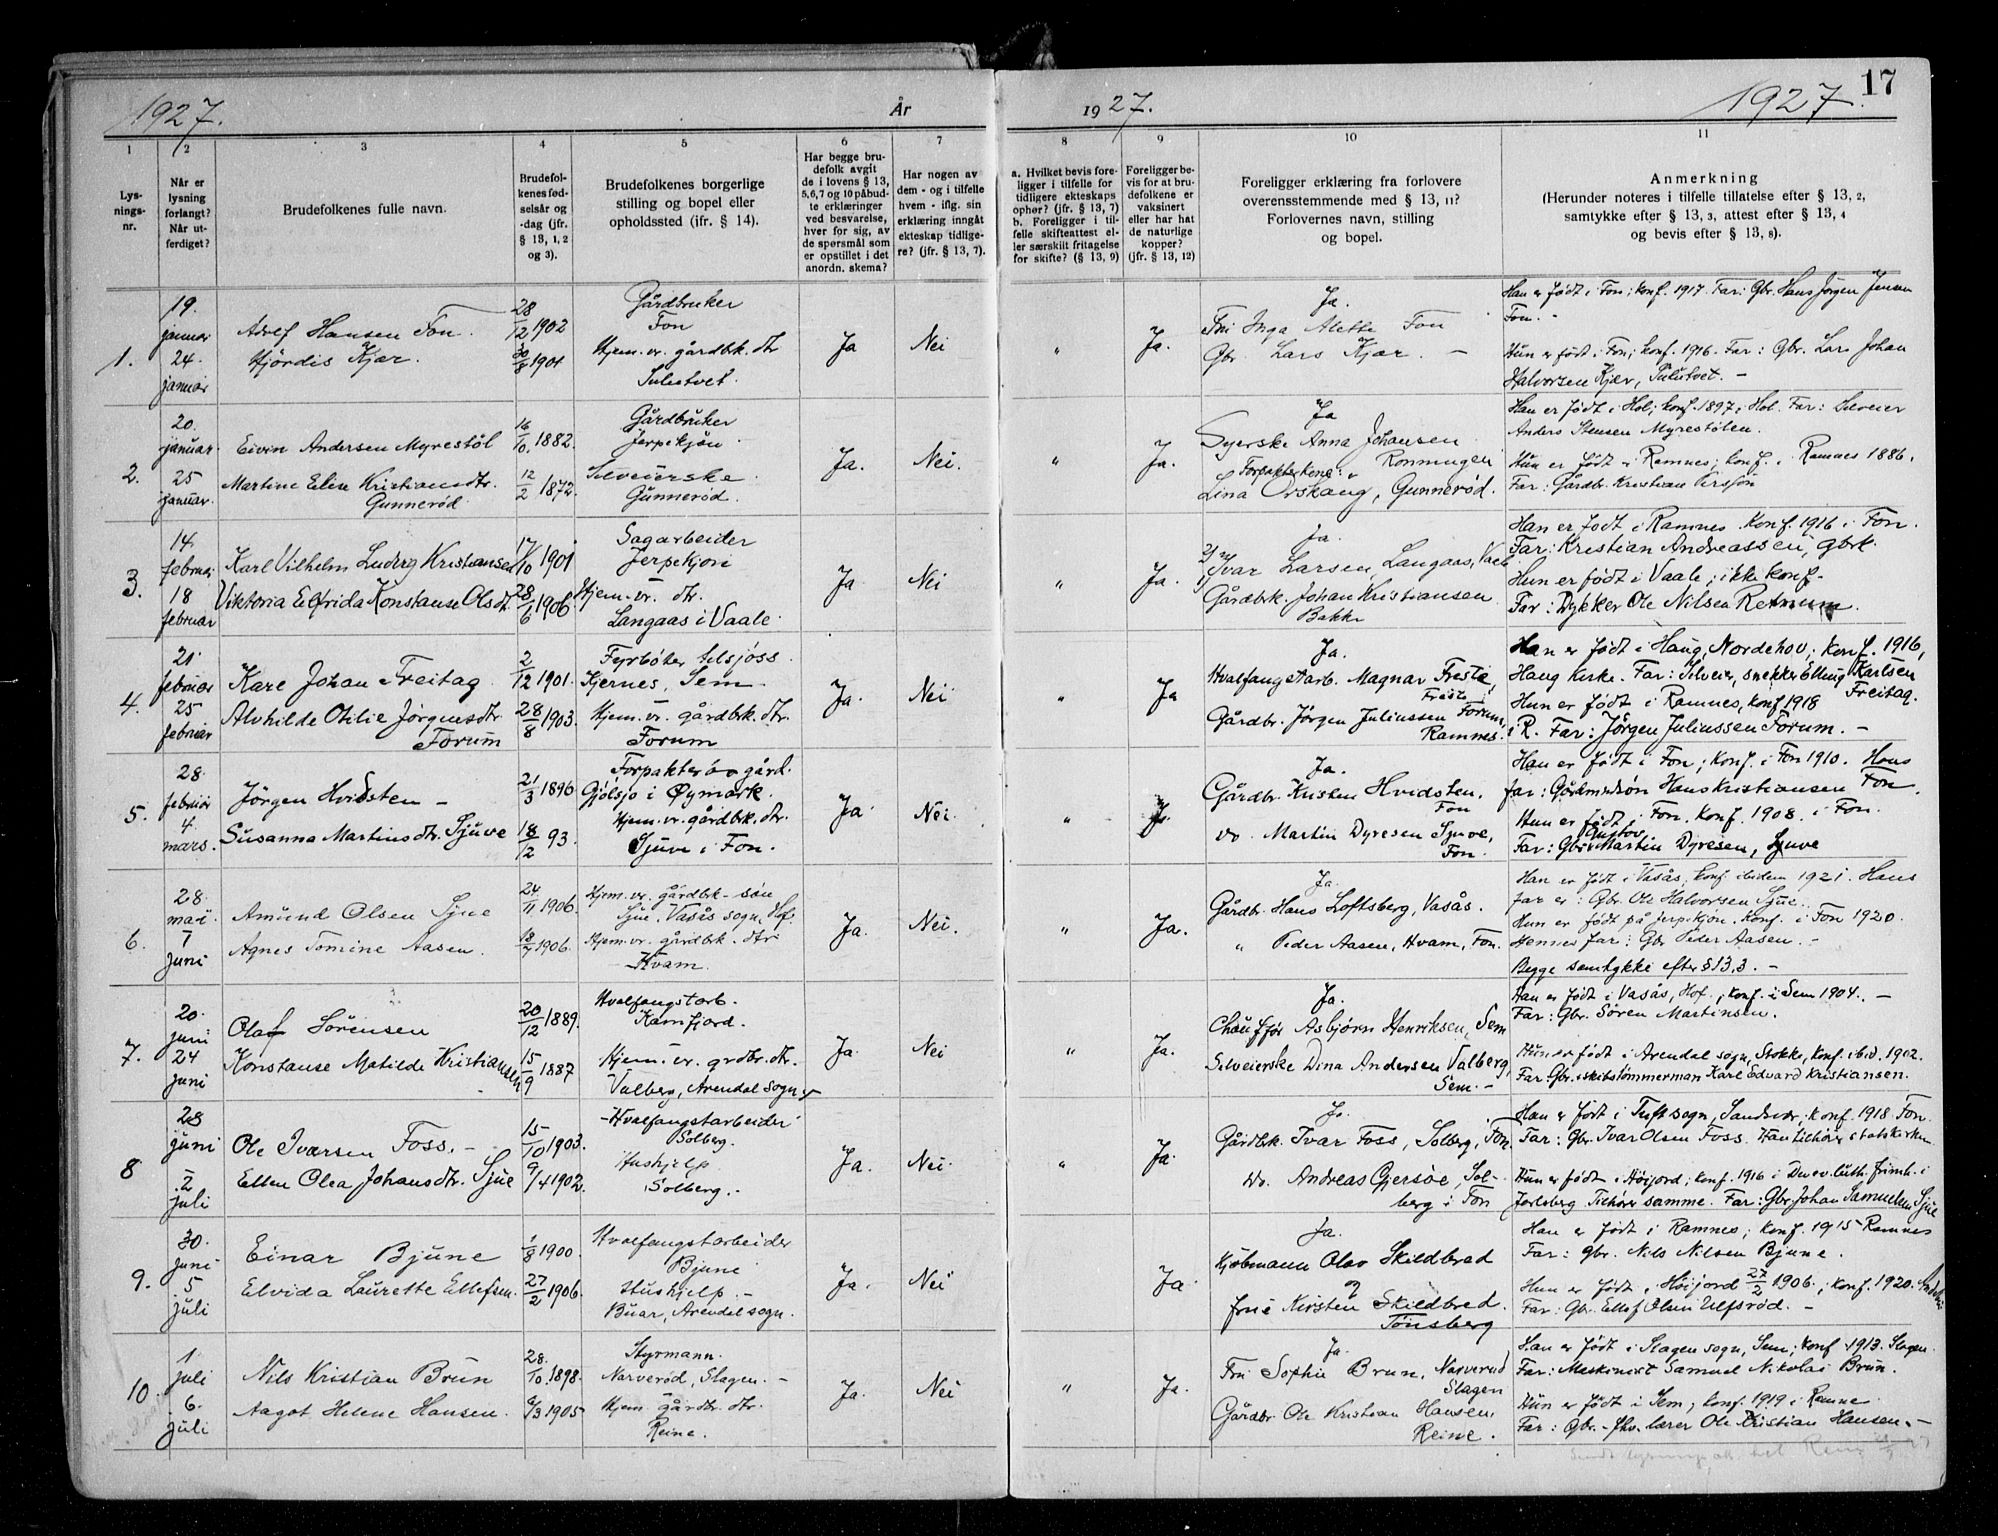 17
1927.
År
1927.
1927.
1
2
3
4
5
6
7
8
9
10
11
Lysningsnr.
Når er lysning forlangt? Når utferdiget?
Brudefolkenes fulle navn.
Brudefolkenes fødselsår og -dag (jfr. § 13, 1, 2 og 3).
Brudefolkenes borgerlige stilling og bopel eller opholdssted (ifr. § 14).
Har begge brudefolk avgit de i lovens § 13, 5,6,7 og 10 påbudte erklæringer ved besvarelse, hver for sig, av de spørsmål som er opstillet i det anordn. skema?
Har nogen av dem - og i tilfelle hvem - iflg. sin erklæring inngått ekteskap tidligere? (jfr. § 13, 7).
a. Hvilket bevis foreligger i tilfelle for tidligere ekteskaps ophør? (jfr. § 13, 7) b. Foreligger i tilfelle skifteattest eller særskilt fritagelse for skifte? (§ 13, 9)
Foreligger bevis for at brudefolkene er vaksinert eller har hat de naturlige kopper? (jfr. § 13, 12)
Foreligger erklæring fra forlovere overensstemmende med § 13, 11? Forlovernes navn, stilling og bopel.
Anmerkning
(Herunder noteres i tilfelle tillatelse efter § 13, 2, samtykke efter § 13, 3, attest efter § 13, 4 og bevis efter § 13, 8).
1.
19. januar
24. januar
Adolf Hansen Fon.
Hjördis Kjær.
28/12 1902
1901
Gårdbruker
Fon
Hjem.vr. gårdbk. dtr
Ja
Nei
"
Ja.
Ja.
Fru Inga Alette Fon
Gbr. Lars Kjær. –
Han er født i Fon; konf. 1917. Far: Gbr. Hans Jörgen Jensen
Fon. –
Hun er født i Fon; konf. 1916. Far: Gbr. Lars Johan
Halvorsen Kjær,
2.
20. januar.
25 januar.
Eivin Andersen Myrestøl
Martine Eline Kristiansdtr.
Gunnerød
16/10. 1882.
12/2 1872.
Gårdbruker
Jerpekjøn
Selveierske
Gunnerød.
Ja.
Nei.
"
Ja.
Ja
Syerske Anna Johansen
Ronningen
Forpakterkone
Lina Orskaug, Gunnerød.
Han er født i Hol; konf. 1897 i Hol. Far: Selveier
Anders Stensen Myrestølen.
Hun er født i Ramnes; konf. i Ramnes 1886.
Far: Gårdbr. Kristian
3.
14. februar
18 februar
Karl Vilhelm Ludvig Kristiansen
Viktoria Elfrida Konstanse Olsdtr
17/10 1901
28/6 1906
Sagarbeider
Jerpekjøn
Hjem.vr. dtr.
Langaas i Vaale.
Ja
Nei
"
Ja.
Ja.
Ivar Larsen, Langaas, Vaale
Gårdbrk. Johan Kristiansen
Bakke
Han er født i Ramnes. Konf. 1916 i Fon.
Far: Kristian Andreassen, gbrk.
Hun er født i Vaale; ikke konf.
Far: Dykker Ole Nilsen
4.
21. februar
25 februar
Kare Johan Freitag
Alvhilde Otilie Jørgensdtr.
Forum
2/12 1901.
28/8 1903.
Fyrbøter tilsjøss.
Kjernes, Sem.
Hjem.vr. gårdbk. dtr.
Forum
Ja.
Nei
"
Ja
Ja.
Hvalfangstarb. Magnar Freste,
Freste
Gårdbr. Jørgen Juliussen Forum,
Ramnes.
Han er født i Haug, Nordehov; konf. 1916,
Haug Kirke. Far: Selveier, snekker Elling Karlsen
Freitag.
Hun er født i Ramnes, konf 1918
i R. Far: Jörgen Juliussen Forum. –
5.
28. februar
4. mars.
Jørgen Hvidsten –
Susanna Martinsdtr. Sjuve
21/3 1896
18/12 93.
Forpakter av gård.
Gjølsjø i Øymark.
Hjem.vr. gårdbk. dtr.
Sjuve i Fon.
Ja
Nei.
"
Ja.
Ja.
Gårdbr. Kristen Hvidsten,
Fon
do. Martin Dyresen Sjuve,
Fon.
Han er født i Fon; konf. i Fon 1910. Hans
far: Hans Kristiansen Fon.
Hun er født i Fon. Konf. 1908. i Fon
Far: Gbr. Gustav Martin Dyresen, Sjuve
6.
28. mai
1 juni
Amund Olsen Sjue
Agnes Tomine Aasen
24/11 1906.
1906.
Hjem.vr. gårdbk - søn
Sjue, Vasås sogn, Hof.
Hjem.vr. gårdbk. dtr
Hvam.
Ja.
Nei.
"
Ja.
Ja.
Gårdbr. Hans Loftsberg, Vasås.
" Peder Aasen, Hvam, Fon
Han er født i Vasås, konf. ibidem 1921. Hans
far er: Gbr. Ole Halvorsen Sjue.
Hun er født på Jerpekjøn. Konf. i Fon 1920.
Hennes far: Gbr Peder Aasen. –
Begge samtykke efter § 13,3. –
7.
20. juni
24 juni
Olaf Sörensen
Konstanse Matilde Kristiansen
20/12 1889.
15/9 1887
Hvalfangstarb.
Ramfjord.
Hjem.vr. grdbr. dtr.
Valberg, Arendal sogn
Ja.
Nei
"
Ja.
Ja.
Chauffør Asbjørn Henriksen, Sem
Selveierske Dina Andersen Valberg,
Sem. –
Han er født i Vasås, Hof., konf. i Sem 1904. –
Far: Gbr. Søren Martinsen.
Hun er født i Arendal sogn, Stokke, konf. ibid. 1902.
Far Gbr. skibstømmerman Karl Edvard Kristiansen.
8
28 juni
2 juli
Ole Iversen Foss. –
Ellen Olea Johansdtr. Sjue
15/10 1903.
9/4 1902.
Hvalfangstarbeider
Solberg.
Hushjelp
Solberg. –
Ja.
Nei.
"
Ja.
Ja
Gårdbk. Ivar Foss, Solberg, Fon
do. Andreas Gjersøe, Solberg
i Fon
Han er født i Tuft sogn, Sandsvær; konf. 1918 Fon
Far: Gbr. Ivar Olsen Foss. Han tilhører statskirken
Hun er født i Høijord; konf. 1916 i Den ev. luth. frimh. i
Jarlsberg Tilhører samme. Far: Gbr Johan Samuelsen Sjue
9.
30. juni
5 juli
Einar Bjune
Elvida Laurette Ellefsen.
1/8 1900.
27/2 1906.
Hvalfangstarbeider
Bjune
Hushjelp. –
Buar, Arendal sogn.
Ja.
Nei
Ja
Ja.
Kjøbmann Olav Skildbred
og
frue Kirsten Skildbred.
Tønsberg
Han er født i Ramnes; konf. 1915 Ramnes
Far: Gbr. Nils Nilsen Bjune.
Hun er født i Høijord 27/2 1906; konf. 1920.
Far: Gbr. Ellef Olsen Ulfsrød. –
10.
1 juli
6. juli
Nils Kristian Brun
Aagot Helene Hansen.
28./10. 1898.
9/3 1905
Styrmann.
Narverød, Slagen. –
Hjem. gårdbr. dtr.
Reine.
Ja.
Nei
"
Ja.
Ja.
Fru Sophie Brun, Narverød
Slagen
Gårdbr. Ole Kristian Hansen,
Reine.
Han er født i Slagen sogn, Sem; konf 1913. Slagen.
Far: Maskinist Samuel Nikolai Brun.
Hun er født i Sem, konf. 1919 i Ramne
Far: Gbr. – fhv. lærer Ole Kristian Hansen. –